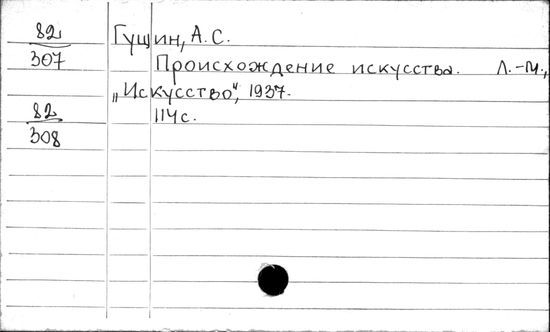 82
307
Гущин, А.С.
Происхождение искусства. Л.-М.,
„Искусство", 1937.
114 с.
82
308